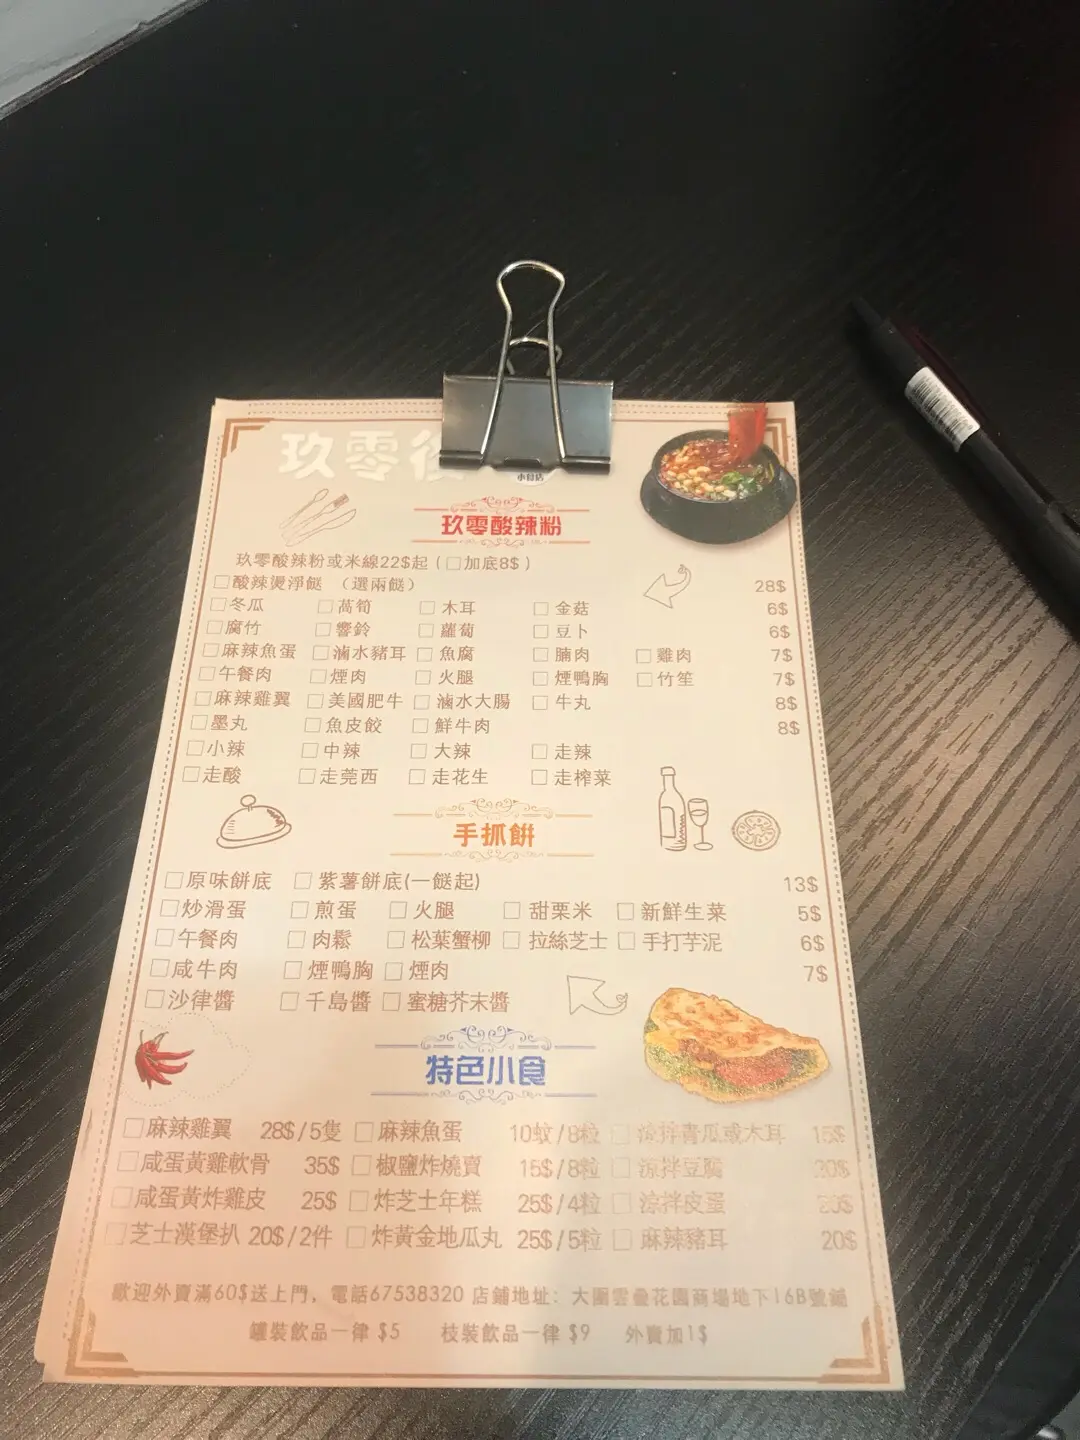 玖零後
小食店
玖零酸辣粉
玖零酸辣粉或米線22$起 (□加底8$)
□酸辣燙淨餸 (選兩餸) 28$
□冬瓜 □萵筍 □木耳 □金菇 6$
□腐竹 □響鈴 □蘿蔔 □豆卜 6$
□麻辣魚蛋 □滷水豬耳 □魚腐 □腩肉 □雞肉 7$
□午餐肉 □煙肉 □火腿 □煙鴨胸 □竹笙 7$
□麻辣雞翼 □美國肥牛 □滷水大腸 □牛丸 8$
□墨丸 □魚皮餃 □鮮牛肉 8$
□小辣 □中辣 □大辣 □走辣
□走酸 □走莞西 □走花生 □走榨菜
手抓餅
□原味餅底 □紫薯餅底(一餸起) 13$
□炒滑蛋 □煎蛋 □火腿 □甜粟米 □新鮮生菜 5$
□午餐肉 □肉鬆 □松葉蟹柳 □拉絲芝士 □手打芋泥 6$
□咸牛肉 □煙鴨胸 □煙肉 7$
□沙律醬 □千島醬 □蜜糖芥末醬
特色小食
□麻辣雞翼 28$/5隻 □麻辣魚蛋 10蚊/8粒 □涼拌青瓜或木耳 15$
□咸蛋黃雞軟骨 35$ □椒鹽炸燒賣 15$/8粒 □涼拌豆腐
□咸蛋黃炸雞皮 25$ □炸芝士年糕 25$/4粒 □涼拌皮蛋 20$
□芝士漢堡扒 20$/2件 □炸黃金地瓜丸 25$/5粒 □麻辣豬耳 20$
歡迎外賣滿60$送上門, 電話67538320 店鋪地址: 大圍雲疊花園商場地下16B號鋪
罐裝飲品一律 $5 枝裝飲品一律 $9 外賣加1$